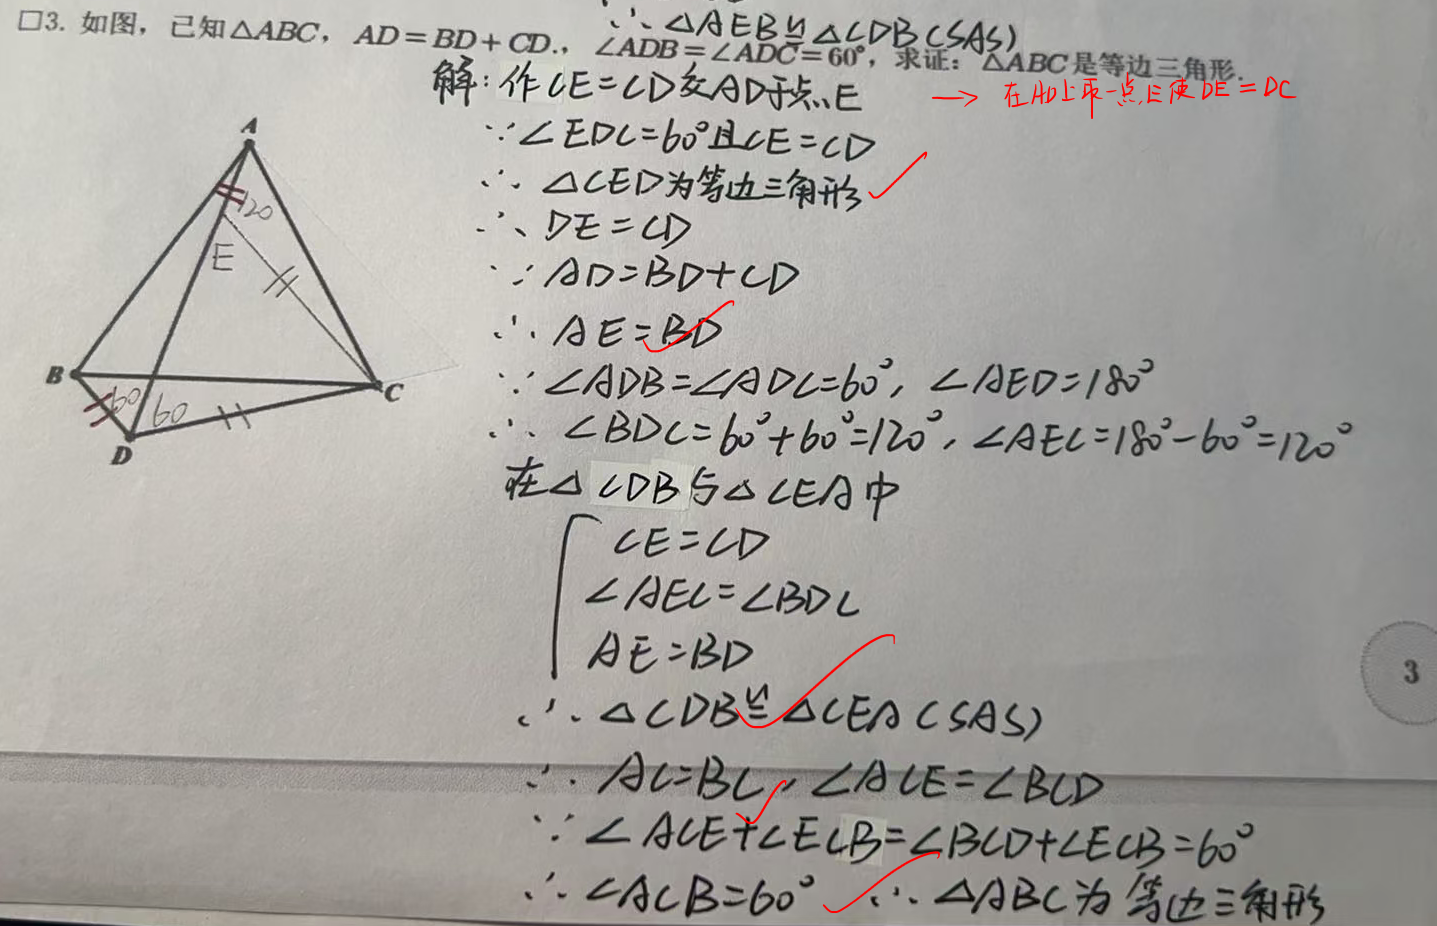 ∴ △AEB≌△CDB(SAS)
□3. 如图，已知△ABC，AD=BD+CD.，∠ADB=∠ADC=60°，求证：△ABC是等边三角形.
解：作CE=CD交AD于点E
→ 在AD上取一点E使DE=DC
∵∠EDC=60°且CE=CD
∴ △CED为等边三角形
∴ DE=CD
∵ AD=BD+CD
∴ AE=BD
∵ ∠ADB=∠ADC=60°，∠AED=180°
∴ ∠BDC=60°+60°=120°，∠AEC=180°-60°=120°
在△CDB与△CEA中
CE=CD
∠AEC=∠BDC
AE=BD
∴ △CDB≌△CEA(SAS)
∴ AC=BC，∠ACE=∠BCD
∵ ∠ACE+∠ECB=∠BCD+∠ECB=60°
∴ ∠ACB=60° ∴ △ABC为等边三角形
A
120
E
B
60
60
C
D
3